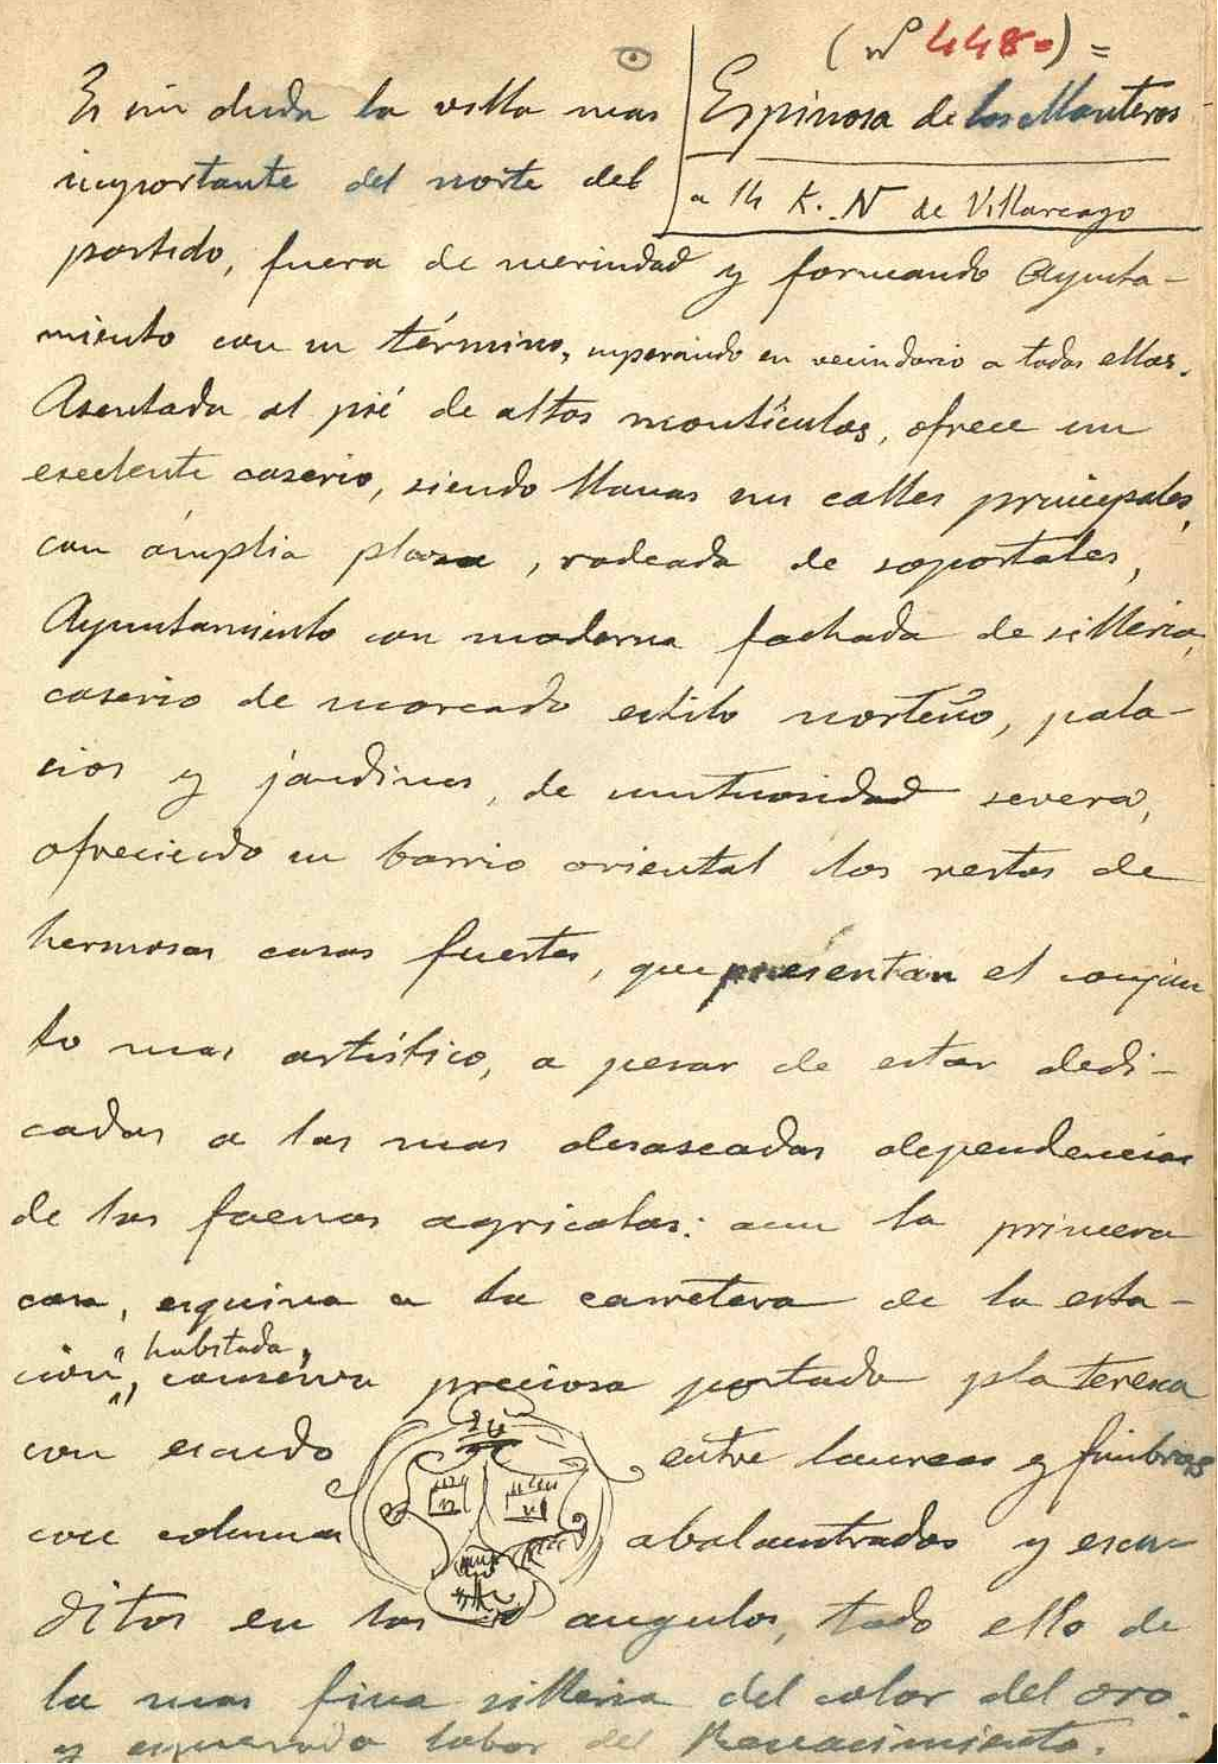 (nº 4480) =
Espinosa de los Monteros
a 14 K. N de Villarcayo
Es sin duda la villa mas
importante del norte del
partido, fuera de merindad y formando Ayunta-
miento con su término, superando en vecindario a todas ellas.
Asentada al pié de altos montículos, ofrece un
excelente caserio, siendo llanas sus calles principales,
con ámplia plaza, rodeada de soportales,
Ayuntamiento con moderna fachada de silleria,
caserio de marcado estilo norteño, pala-
cios y jardines, de suntuosidad severa,
ofreciendo su barrio oriental los restos de
hermosas casas fuertes, que presentan el conjun
to mas artístico, a pesar de estar dedi-
cadas a las mas desaseadas dependencias
de las faenas agricolas: aun la primera
casa, esquina a la carretera de la esta-
ción, "habitada", conserva preciosa portada plateresca
con escudo entre laureas y fimbrias
con columnas abalaustradas y escu-
ditos en los angulos, todo ello de
la mas fina silleria del color del oro
y esmerada labor del Renacimiento.